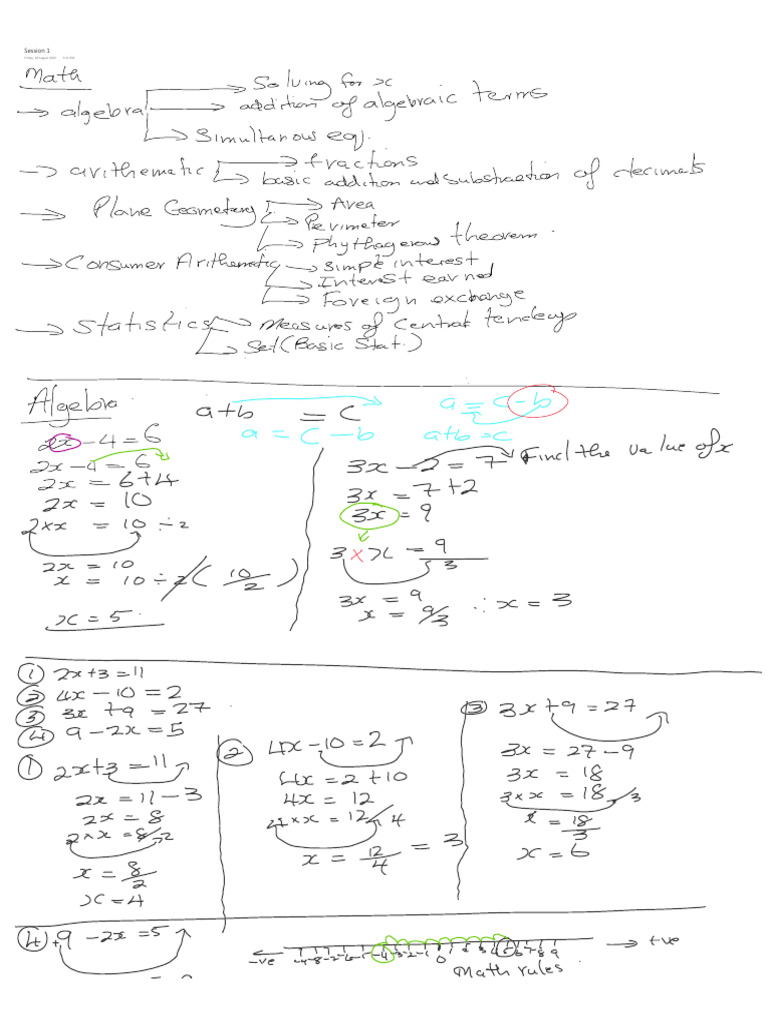 Session 1
Math
→ algebra → Solving for x
→ addition of algebraic terms
→ Simultanous eq.
→ arithematic → fractions
→ basic addition and substraction of decimals
→ Plane Geometry → Area
→ Perimeter
→ Phythagerous theorem.
→ Consumer Arithematic → Simple interest
→ Interest earned
→ Foreign exchange
→ Statistics → Measures of Central tendecy
→ Set (Basic Stat.)
Algebra
a+b = c
a = c - b
a = c - b
a+b = c
2x - 4 = 6
2x - 4 = 6
2x = 6+4
2x = 10
2 × x = 10 ÷ 2
2x = 10
x = 10 ÷ 2 (10/2)
x = 5.
3x - 2 = 7 Find the value of x
3x = 7+2
3x = 9
3 × x = 9/3
3x = 9
x = 9/3 ∴ x = 3
① 2x+3 = 11
② 4x - 10 = 2
③ 3x + 9 = 27
④ 9 - 2x = 5
① 2x+3 = 11
2x = 11 - 3
2x = 8
2 × x = 8/2
x = 8/2
x = 4
② 4x - 10 = 2
4x = 2 + 10
4x = 12
4 × x = 12/4
x = 12/4 = 3
③ 3x + 9 = 27
3x = 27 - 9
3x = 18
3 × x = 18/3
x = 18/3
x = 6
④ +9 - 2x = 5
-ve 0 +ve
Math rules